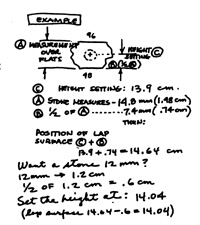 EXAMPLE
96
Ⓐ MEASUREMENT OVER FLATS
HEIGHT SETTING Ⓒ
Ⓑ (½ Ⓐ)
48
Ⓒ HEIGHT SETTING: 13.9 cm.
Ⓐ STONE MEASURES - 14.8 mm (1.48 cm)
Ⓑ ½ OF Ⓐ ------- 7.4 mm (.74 cm)
THEN:
POSITION OF LAP
SURFACE Ⓒ + Ⓑ
13.9 + .74 = 14.64 cm
Want a stone 12 mm?
12mm → 1.2 cm
½ OF 1.2 cm = .6 cm
Set the height at: 14.04
(lap surface 14.64 - .6 = 14.04)